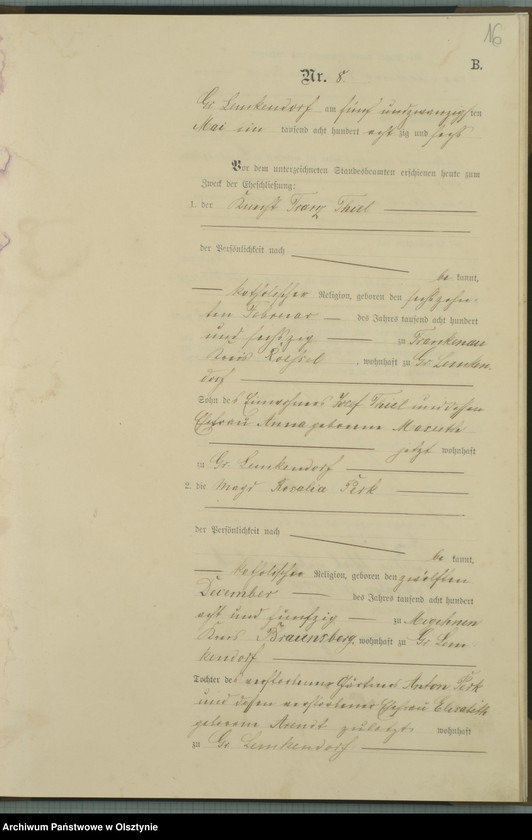 16
B.
Nr. 8.
Gr. Lemkendorf am fünf und zwanzigsten
Mai ein tausend acht hundert acht zig und sechs
Vor dem unterzeichneten Standesbeamten erschienen heute zum
Zweck der Eheschließung:
1. der Knecht Franz Thiel
der Persönlichkeit nach
be kannt,
katholischer Religion, geboren den sechszehn-
ten Februar des Jahres tausend acht hundert
und sechszig zu Frankenau
Kreis Roessel, wohnhaft zu Gr. Lemken
dorf
Sohn des Einwohners Josef Thiel und dessen
Ehefrau Anna geborene
jetzt wohnhaft
zu Gr. Lemkendorf
2. die Magd Rosalia Perk
der Persönlichkeit nach
be kannt,
katholischer Religion, geboren den zwölften
December des Jahres tausend acht hundert
acht und fünfzig zu Migehnen
Kreis Braunsberg, wohnhaft zu Gr. Lem
kendorf
Tochter des verstorbenen Gärtners Anton Perk
und dessen verstorbener Ehefrau Elisabeth
geborene Arendt zuletzt wohnhaft
zu Gr. Lemkendorf
Archiwum Państwowe w Olsztynie